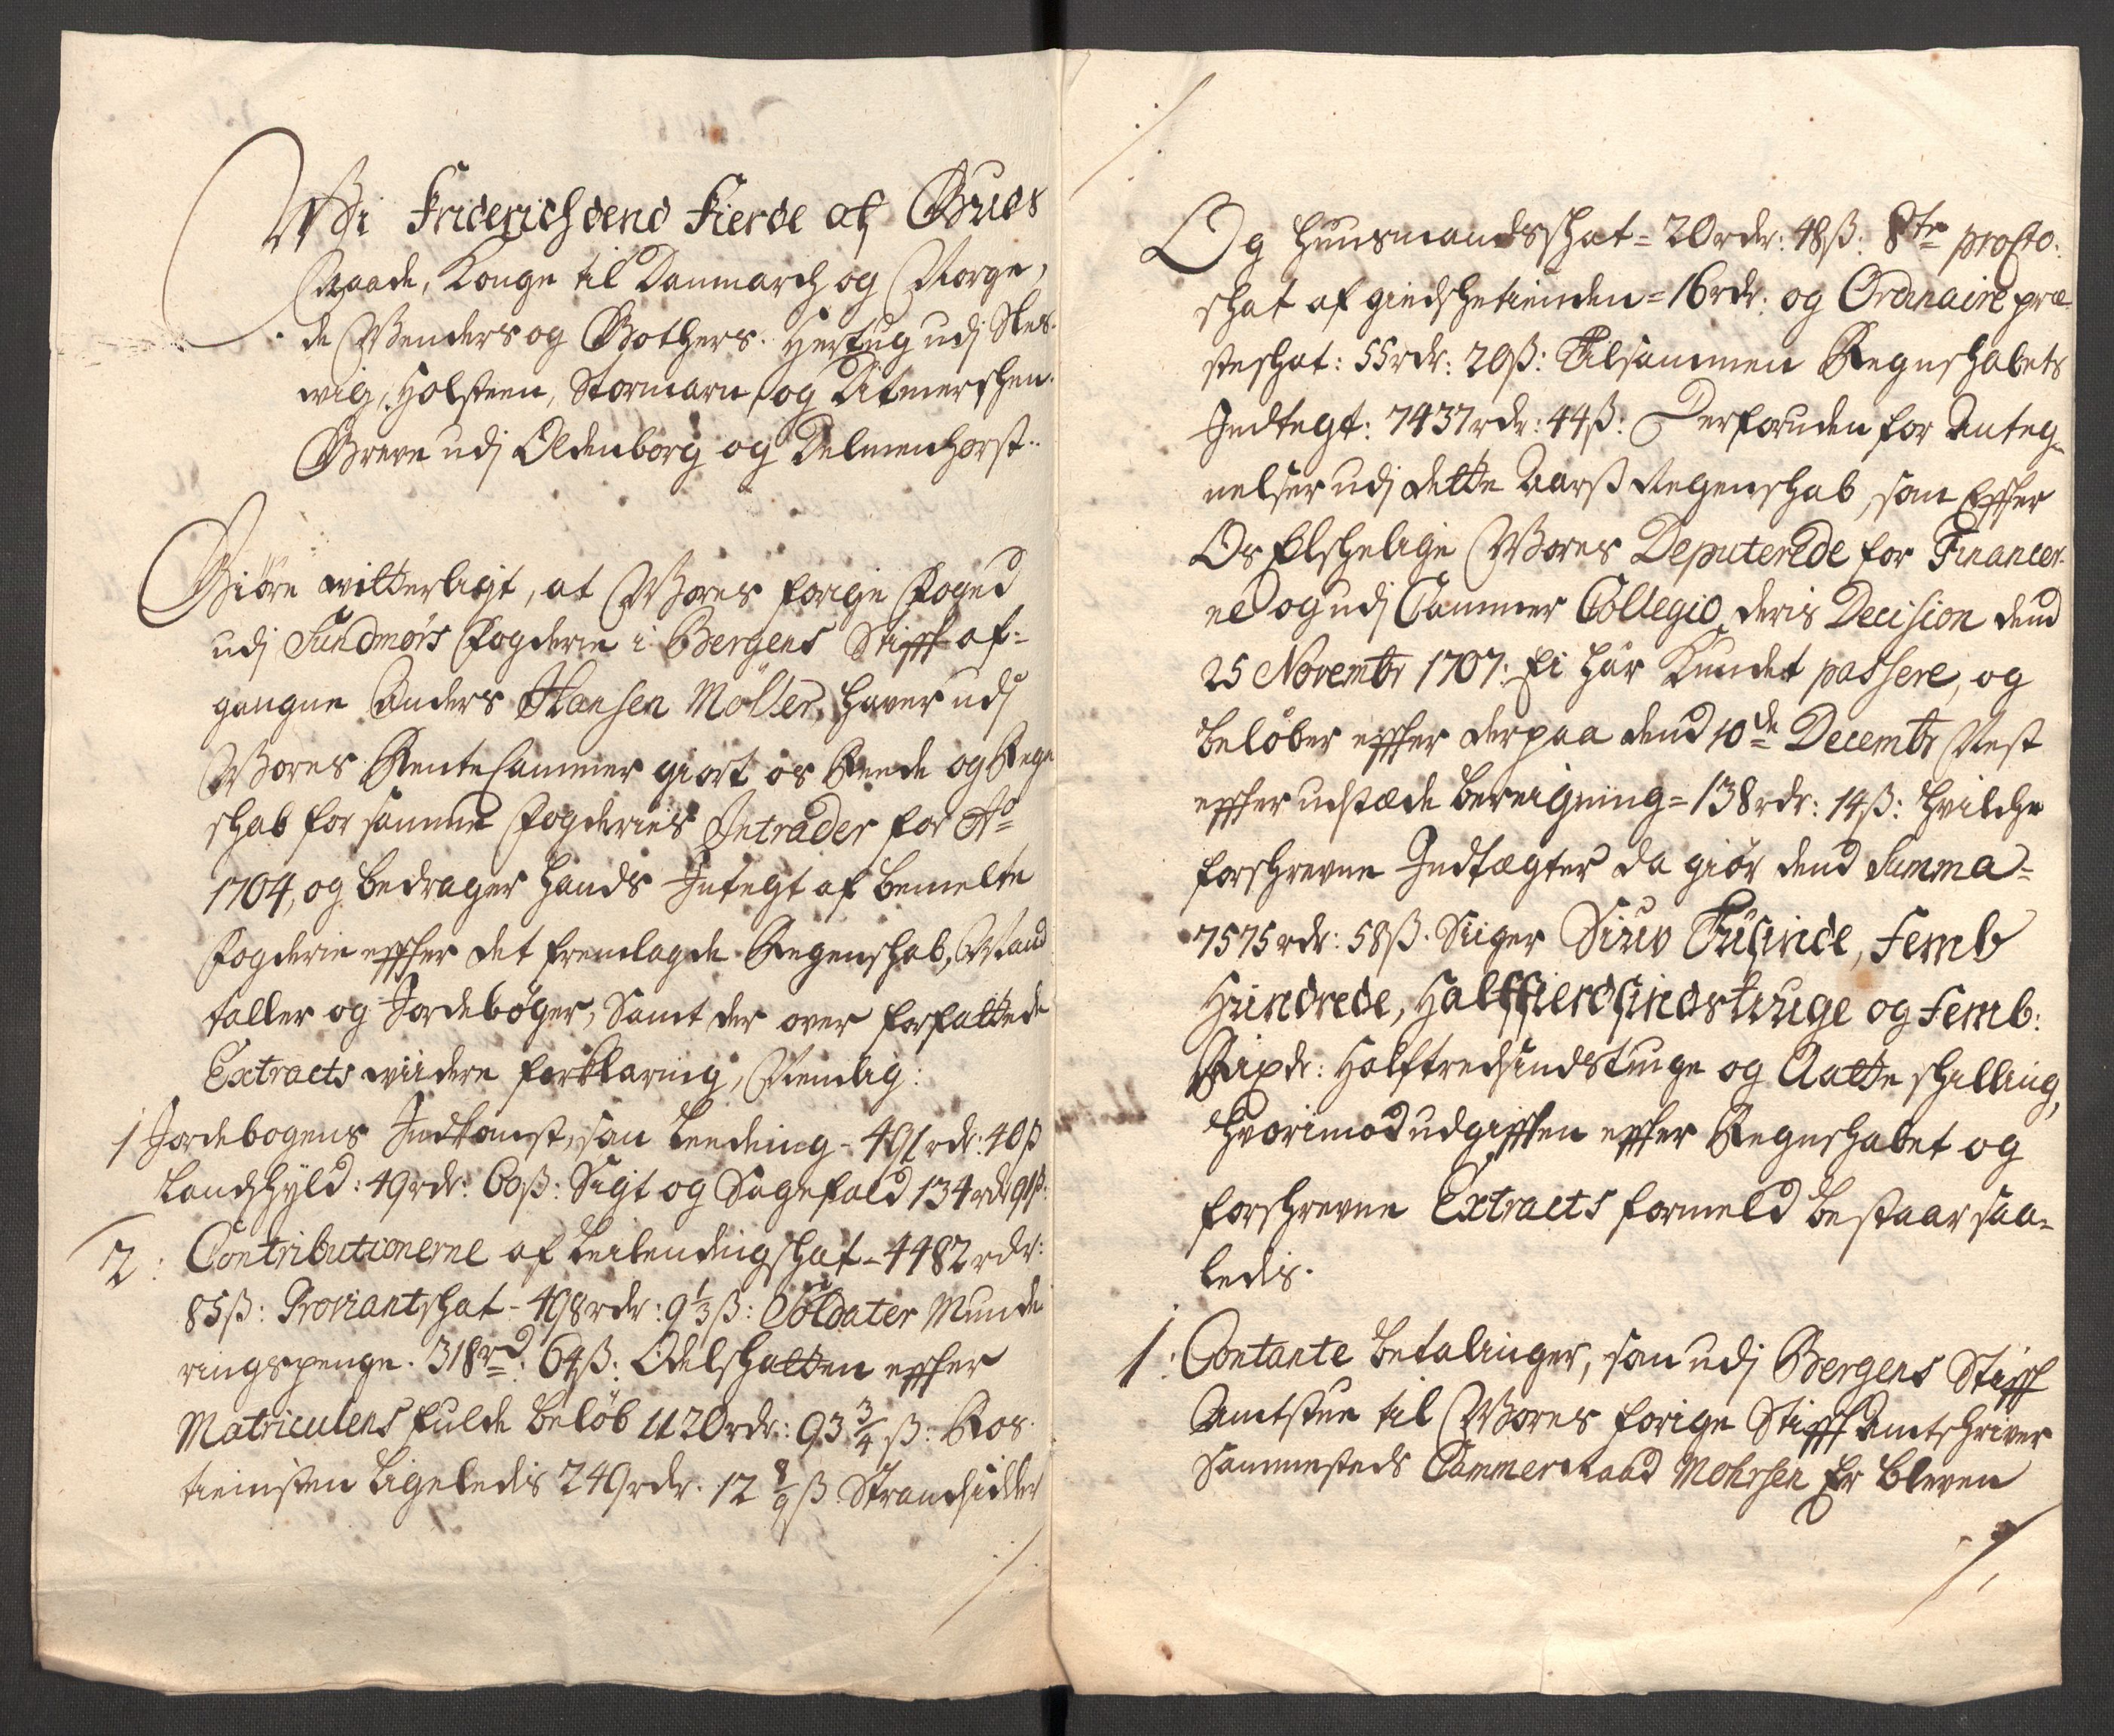 Wi Friderich dend Fierde af Guds
Naade, Konge til Danmarch og Norge,
de Wenders og Gothers. Hertug udj Sles-
wig, Holsteen, Stormarn og Ditmerschen.
Greve udj Oldenborg og Delmenhorst..
Giöre witterligt, at Wores forige Foged
udj Sundmörs Fogderie i Bergens Stifft af=
gangne Anders Hansen Möller, haver udj
Wores Rentecammer giort os Reede og Regn
schab for samme Fogderies Intrader for Ao
1704, og bedrager hands Integt af bemelte
Fogderie effter det fremlagde Regenschab, Mand
taller og Jordebøger, Samt der over forfattede
Extracts wiidere forklaring, Nemlig:
1 Jordebogens Indkomst, som Leeding - 491 rdr: 40ß
Landschyld: 49rdr: 60ß: Sigt og Sagefald 134rdr 91ß:
2: Contributionerne af Leilendingschat - 4482 rdr:
85ß: Proviantschat - 498rdr: 9 1/3 ß: Soldater Munde
ringspenge. 318rd: 64ß: Odelschatten effter
Matriculens fulde Beløb 1120rdr: 93 3/4 ß: Ros-
tieinsten Ligeledis 249rdr. 12 8/9 ß Strandsidder
./.
./.
Og Huusmandsschat = 20rdr: 48ß: 8te procto:
schat af giedschetienden = 16rdr: og Ordinaire præ
steschat: 55rdr: 20ß: Tilsammen Regnschabets
Indtegt: 7437rdr: 44ß: Derforuden for Anteg-
nelser udj dette Aarß Regenschab, som Effter
Os Elschelige Wores Deputerede for Financer-
ne og udj Cammer Collegio, deris Decision dend
25 Novembr 1707: Ei hâr Kundet passere, og
beløber effter derpaa dend 10de Decembr Nest
effter udstæde bereigning = 138rdr: 14ß: hvilche
forschrevne Indtægter da giör dend Summa=
7575rdr: 58ß. Siiger Siuv Tusinde, Femb
Hundrede, Halffierdsindstiuge og Femb:
Rixdr: Halftredsindstiuge og Aatte schilling,
Hvorimod udgifften effter Regnschabet og
forschrevne Extracts formeld bestaar saa-
ledis.
1: Contante betalinger, som udj Bergens Stifft
Amtstue til Wores forige Stifft Amtschriver
Sammesteds Cammerraad Mohrsen Er bleven
./.